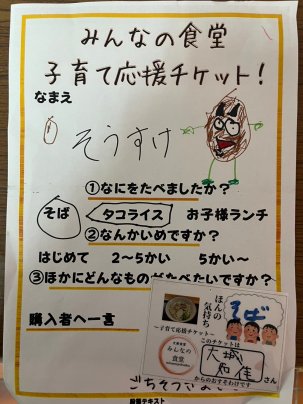 みんなの食堂
子育て応援チケット!
なまえ
そうすけ
①なにをたべましたか?
そば タコライス お子様ランチ
②なんかいめですか?
はじめて 2〜5かい 5かい〜
③ほかにどんなものがたべたいですか?
購入者へ一言
ほんの気持ち
そば
〜子育て応援チケット〜
みんなの食堂
このチケットは
大城
さん
からのおすそわけです
ごちそうさ